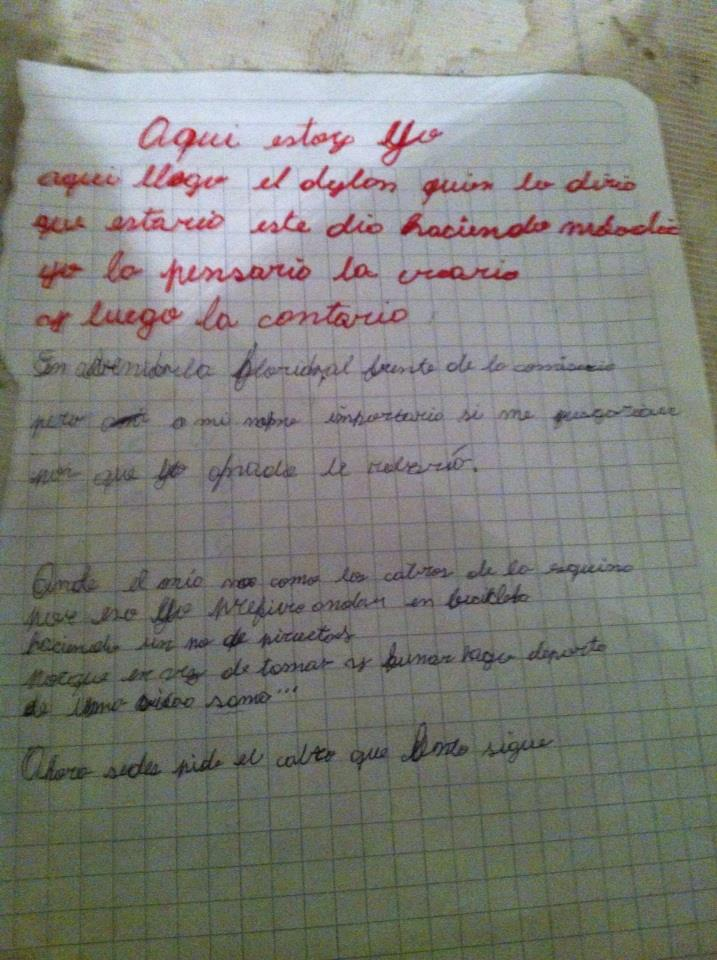 Aqui estoy Yo
aqui llego el dylan quien lo diria
que estaria este dia haciendo melodia
yo la pensaria la crearia
y luego la contaria
En avenida la florida, al frente de la comisaria
pero a mi no me importaria si me
por que yo a nadie le robaría.
Ando el mio no como los cabros de la esquina
por eso Yo prefiro andar en bicicleta
haciendo un no de piruetas
porque en vez de tomar y fumar hago deporte
de una vida sana...
Ahora se despide el cabro que tanto sigue